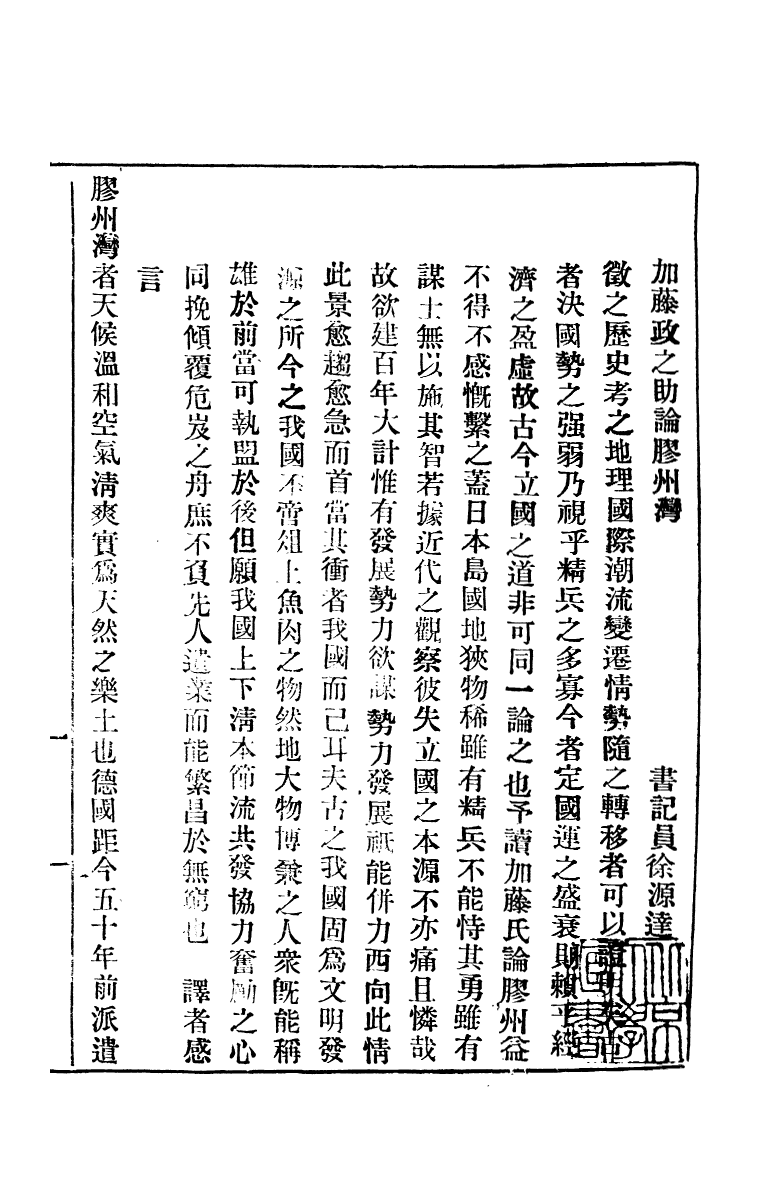 加藤政之助論膠州灣　書記員徐源達
徵之歷史考之地理國際潮流變遷情勢隨之轉移者可以證明矣古
者決國勢之强弱乃視乎精兵之多寡今者定國運之盛衰則賴乎經
濟之盈虛故古今立國之道非可同一論之也予讀加藤氏論膠州益
不得不感慨繫之蓋日本島國地狹物稀雖有精兵不能恃其勇雖有
謀士無以施其智若據近代之觀察彼失立國之本源不亦痛且憐哉
故欲建百年大計惟有發展勢力欲謀勢力發展祇能併力西向此情
此景愈趨愈急而首當其衝者我國而已耳夫古之我國固爲文明發
源之所今之我國不啻俎上魚肉之物然地大物博兼之人衆旣能稱
雄於前當可執盟於後但願我國上下淸本節流共發協力奮勵之心
同挽傾覆危岌之舟庶不負先人遺業而能繁昌於無窮也　譯者感
言
膠州灣者天候溫和空氣淸爽實爲天然之樂土也德國距今五十年前派遣